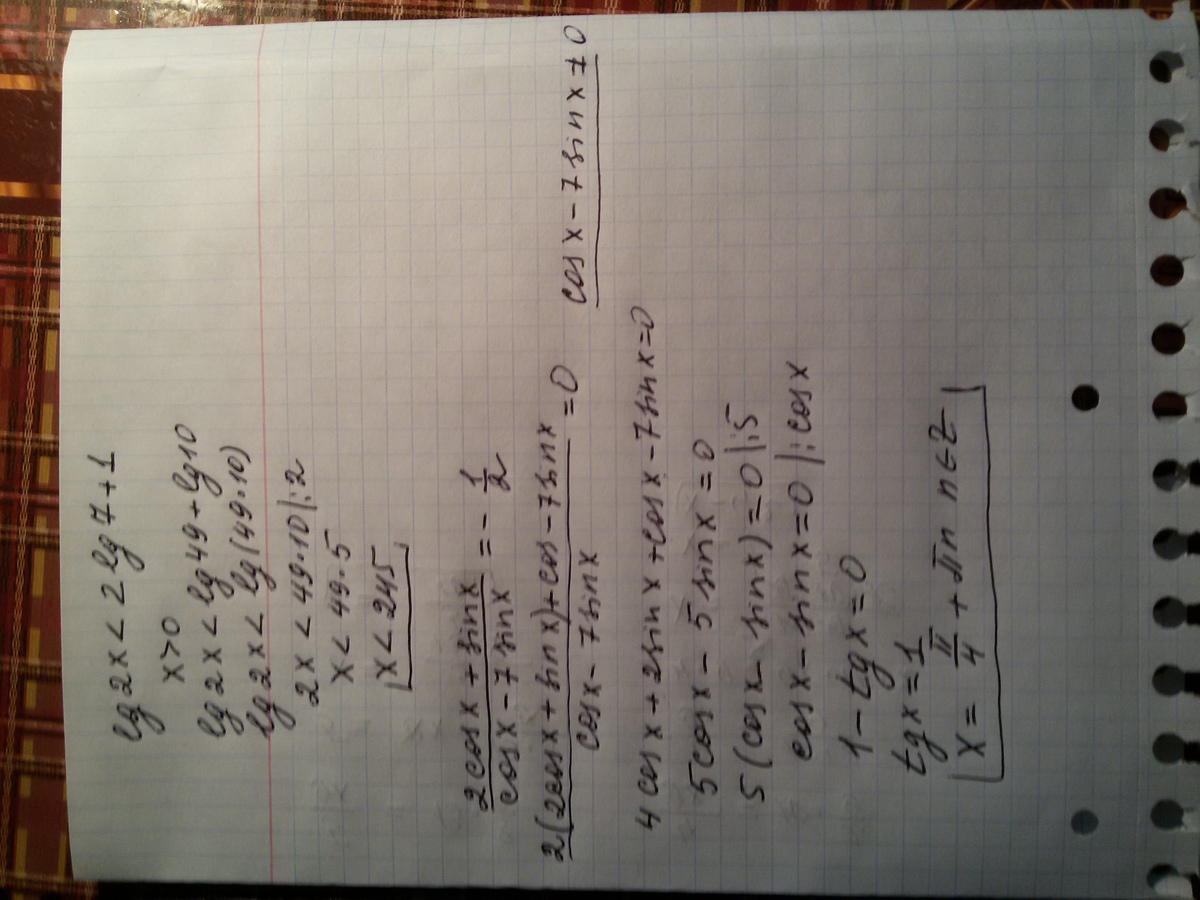 lg 2x < 2 lg 7 + 1
x > 0
lg 2x < lg 49 + lg 10
lg 2x < lg (49·10)
2x < 49·10 |:2
x < 49·5
x < 245
2cosx + sinx / cosx - 7sinx = - 1/2
2(2cosx + sinx) + cos - 7sinx / cosx - 7sinx = 0 cosx - 7sinx ≠ 0
4cosx + 2sinx + cosx - 7sinx = 0
5cosx - 5sinx = 0
5(cosx - sinx) = 0 |:5
cosx - sinx = 0 |:cosx
1 - tgx = 0
tgx = 1
x = π/4 + πn n∈Z